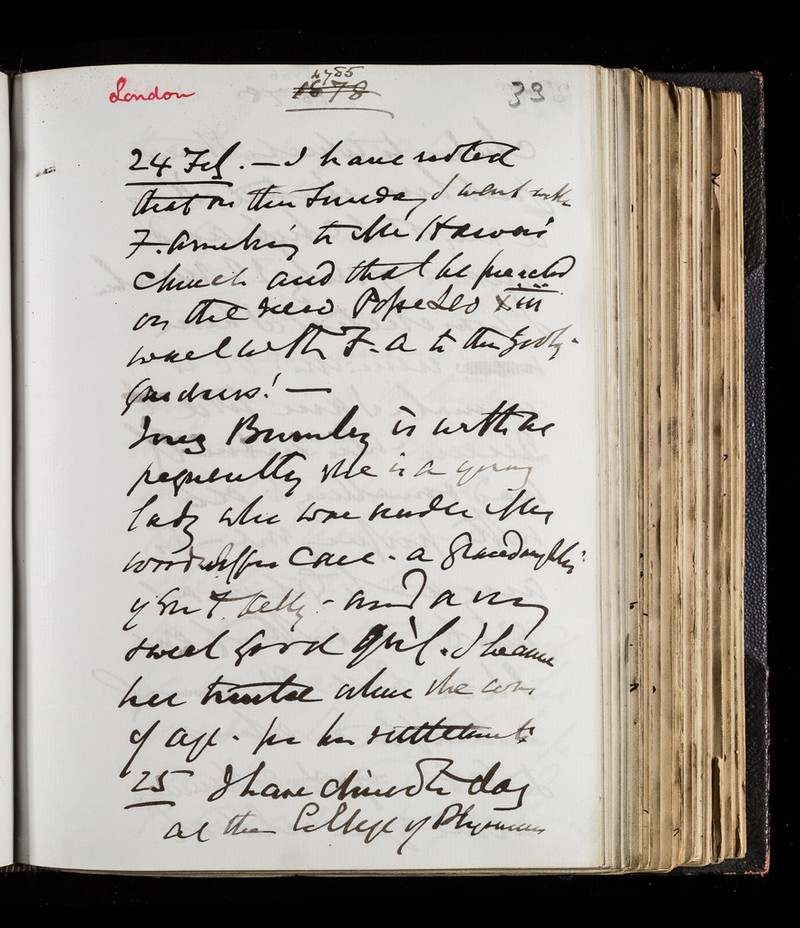 London
1878
39
24 Feb. — I have noted
that on this Sunday I went with
F. to the Haweis'
church and that he preached
on the new Pope Leo XIII
went with F. A to the Zoolg.
Gardens! —
Burnley is with us
frequently she is a young
lady who was under
care - a Granddaughter
of Kelly - and a very
sweet good girl. I became
her trustee when she was
of age - for her settlements
25 I have dined to day
at the College of Physicians